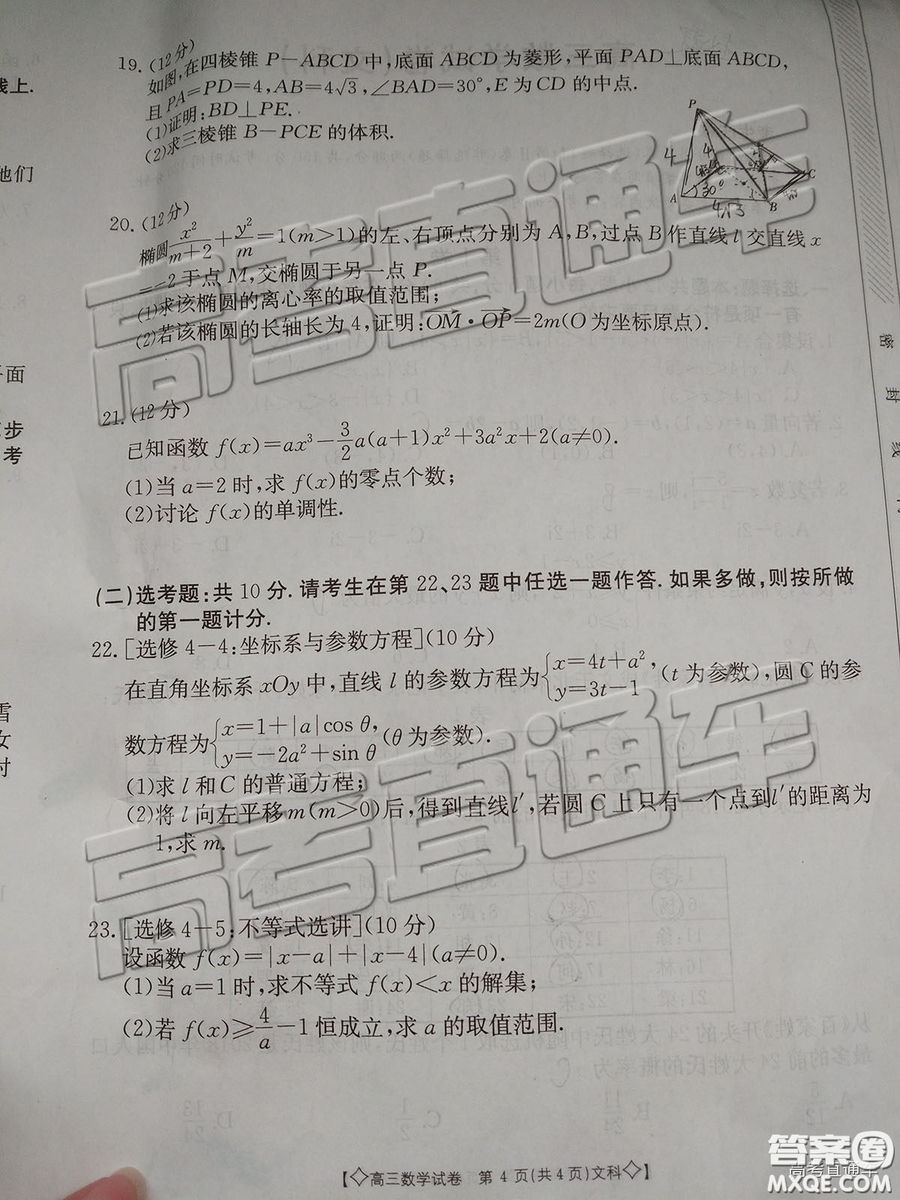 19. (12分)
如图,在四棱锥 P-ABCD 中,底面 ABCD 为菱形,平面 PAD⊥底面 ABCD,
且 PA=PD=4,AB=4√3,∠BAD=30°,E 为 CD 的中点.
(1)证明:BD⊥PE.
(2)求三棱锥 B-PCE 的体积.
P
4
4
A
30°
4√3
B
C
20. (12分)
椭圆 x²/(m+2)+y²/m=1(m>1)的左、右顶点分别为 A,B,过点 B 作直线 l 交直线 x
=-2 于点 M,交椭圆于另一点 P.
(1)求该椭圆的离心率的取值范围;
(2)若该椭圆的长轴长为 4,证明:OM→·OP→=2m(O 为坐标原点).
21. (12分)
已知函数 f(x)=ax³-3/2a(a+1)x²+3a²x+2(a≠0).
(1)当 a=2 时,求 f(x)的零点个数;
(2)讨论 f(x)的单调性.
(二)选考题:共 10 分. 请考生在第 22、23 题中任选一题作答. 如果多做,则按所做
的第一题计分.
22. [选修 4-4:坐标系与参数方程](10 分)
在直角坐标系 xOy 中,直线 l 的参数方程为{x=4t+a², y=3t-1 (t 为参数),圆 C 的参
数方程为{x=1+|a|cos θ, y=-2a²+sin θ (θ为参数).
(1)求 l 和 C 的普通方程;
(2)将 l 向左平移 m(m>0)后,得到直线 l′,若圆 C 上只有一个点到 l′的距离为
1,求 m.
23. [选修 4-5:不等式选讲](10 分)
设函数 f(x)=|x-a|+|x-4|(a≠0).
(1)当 a=1 时,求不等式 f(x)<x 的解集;
(2)若 f(x)≥4/a-1 恒成立,求 a 的取值范围.
【高三数学试卷 第 4 页(共 4 页)文科】
线上.
他们
面
步
考
雪
女
时
密
封
线
高考直通车
高考直通车
答案圈
高考直通车
MXQE.COM